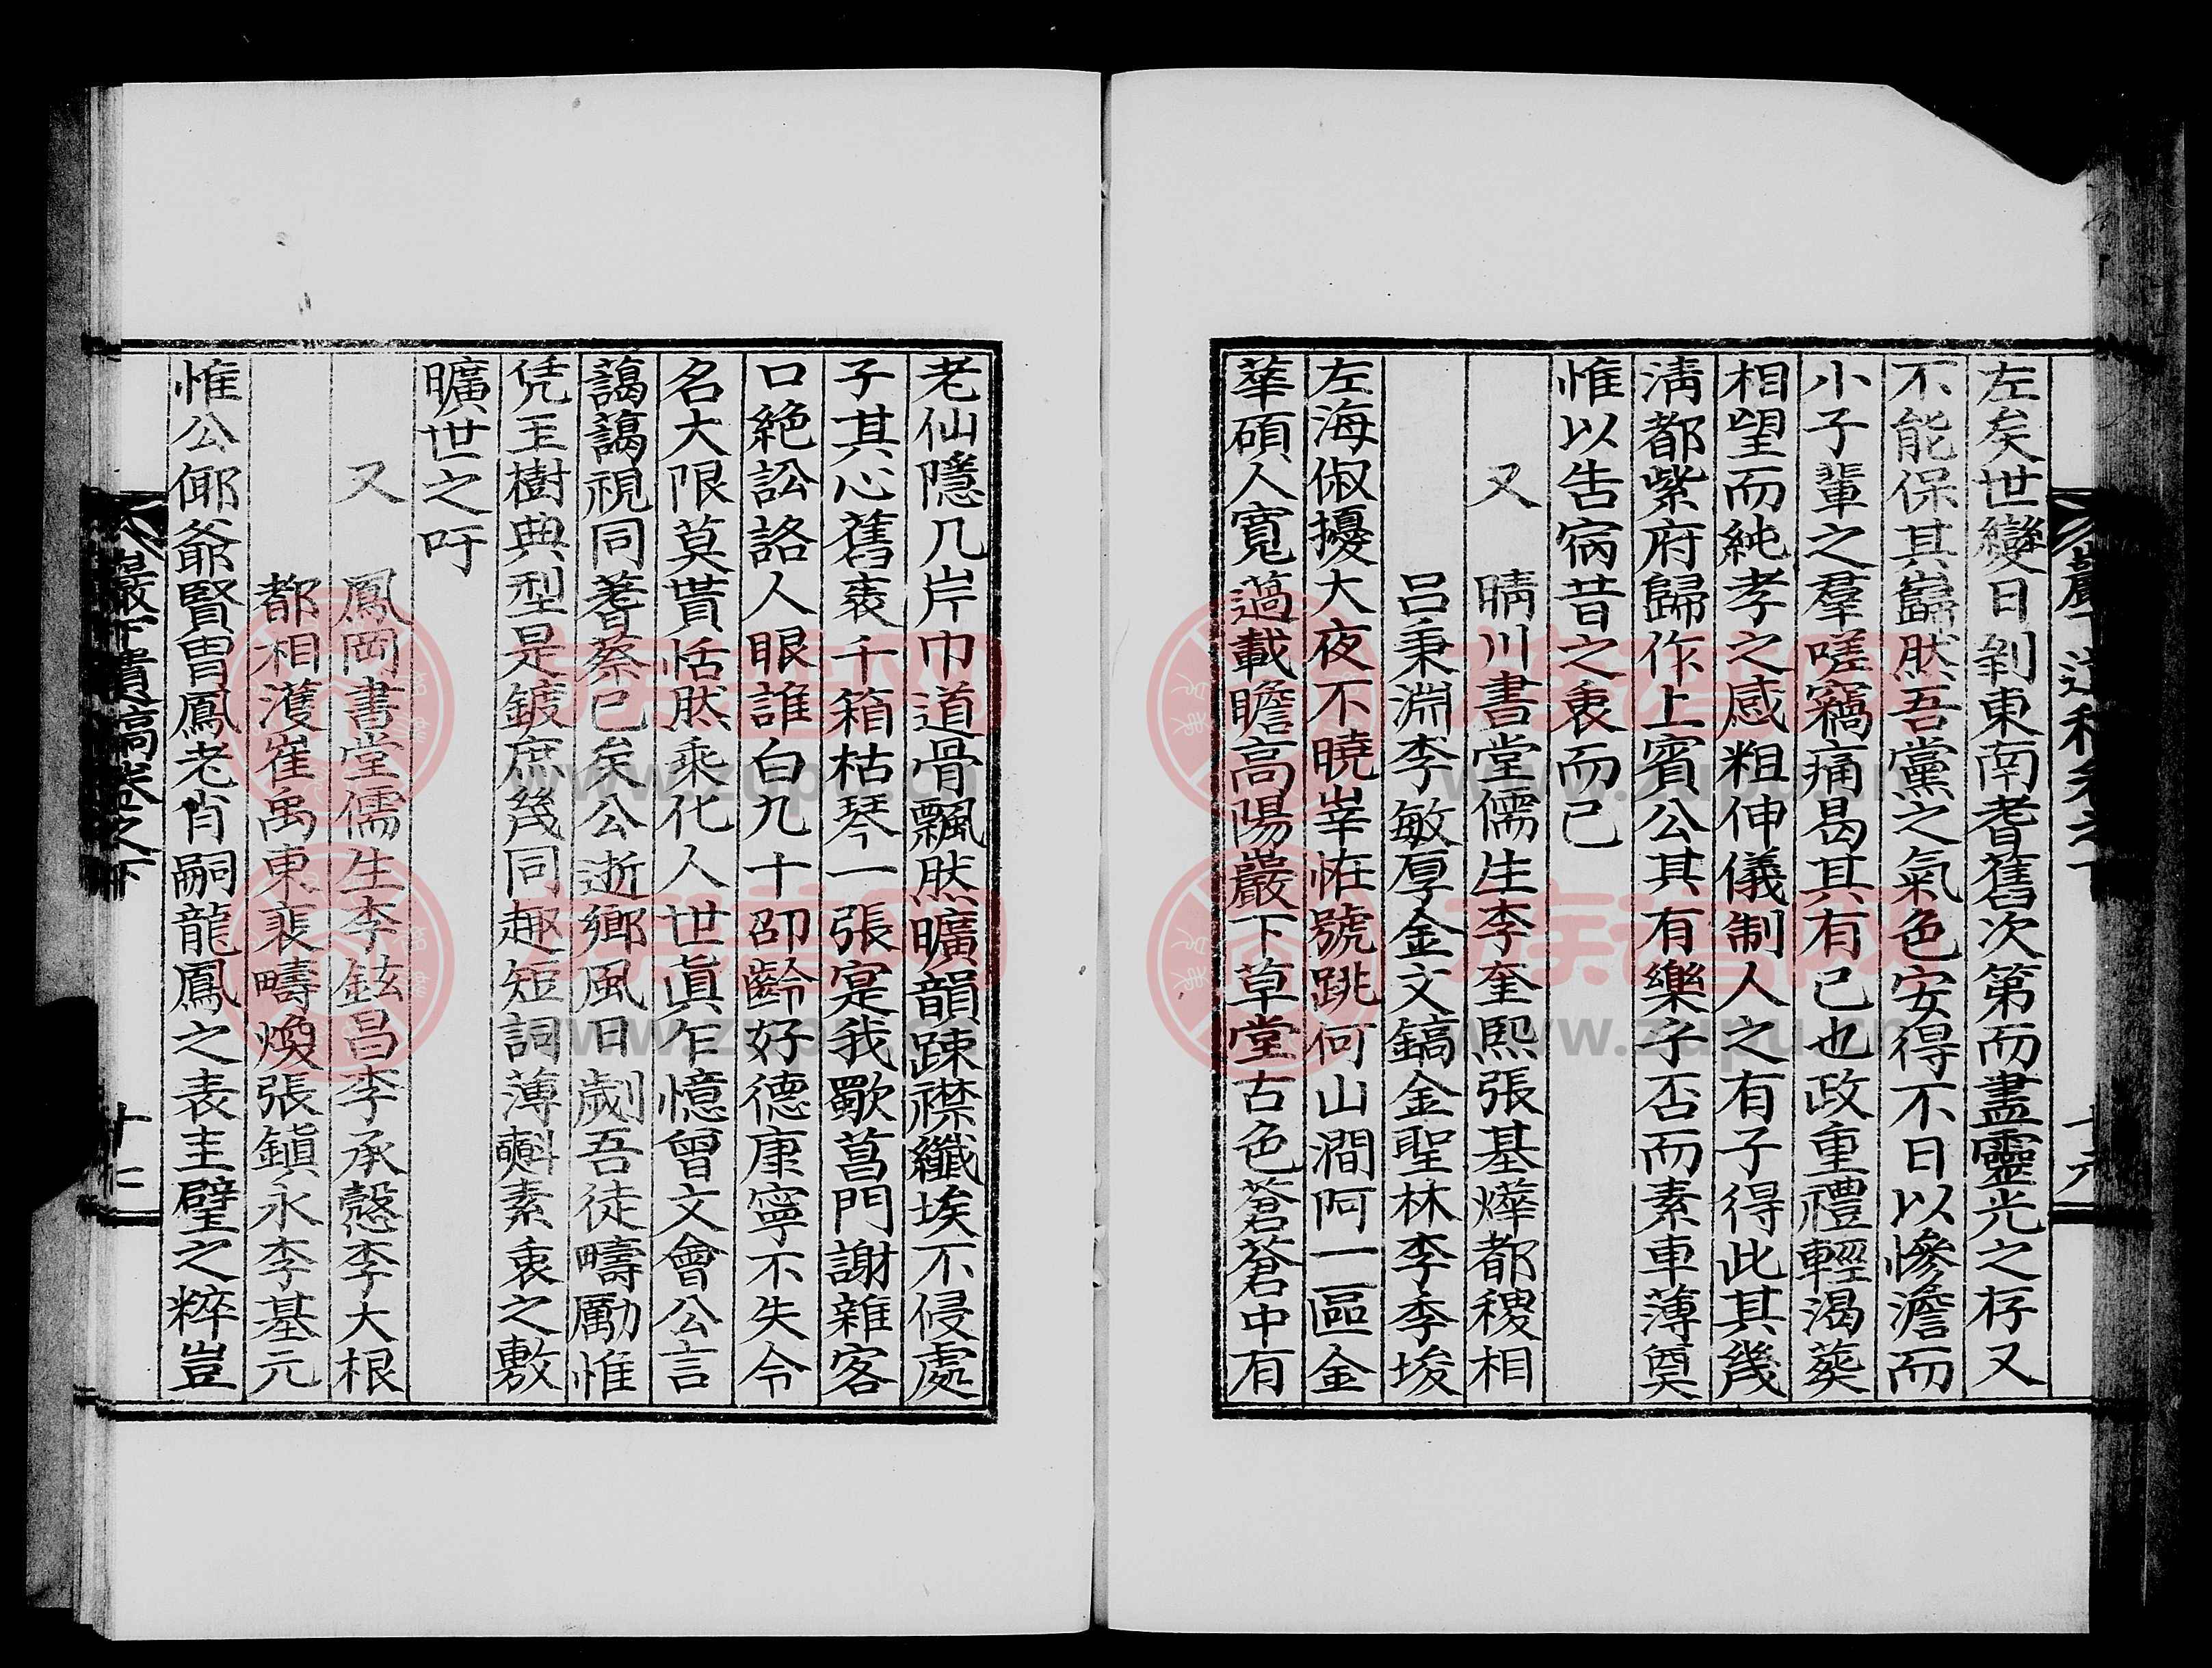 左矣世變日剝東南耆舊次第而盡靈光之存又
不能保其巋然吾黨之氣色安得不日以慘澹而
小子輩之羣嗟竊痛曷其有已也政重禮輕渴葬
相望而純孝之感粗伸儀制人之有子得此其幾
淸都紫府歸作上賓公其有樂乎否而素車薄奠
惟以告宿昔之衷而已
又 晴川書堂儒生李奎熙張基燁都稷相
呂秉淵李敏厚金文鎬金聖林李李埈
左海俶擾大夜不曉峷恠號跳何山澗阿一區金
華碩人寬薖載瞻高陽巖下草堂古色蒼蒼中有
老仙隱几岸巾道骨飄然曠韻踈襟纖埃不侵處
子其心舊袠千箱枯琴一張寔我歠菖門謝雜客
口絶訟詻人眼誰白九十卲齡好德康寧不失令
名大限莫貰恬然乘化人世眞乍憶曾文會公言
藹藹視同蓍蔡已矣公逝鄕風日劌吾徒疇勵惟
凭玉樹典型是鍍庶幾同趣短詞薄㪺素衷之敷
曠世之吁
又 鳳岡書堂儒生李鉉昌李承慤李大根
都相濩崔禹東裵疇煥張鎭永李基元
惟公倻爺賢胄鳳老肖嗣龍鳳之表圭璧之粹豈
巖下遺稿卷之下
十七
www.zupu.cn
www.zupu.cn
www.zupu.cn
www.zupu.cn
族谱网
族谱网
族谱网
族谱网